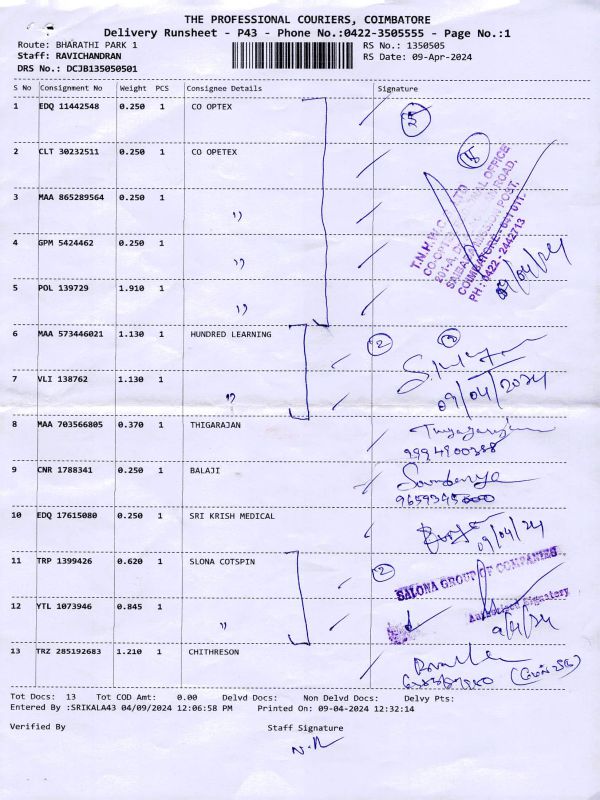 THE PROFESSIONAL COURIERS, COIMBATORE
Delivery Runsheet - P43 - Phone No.:0422-3505555 - Page No.:1
Route: BHARATHI PARK 1 RS No.: 1350505
Staff: RAVICHANDRAN RS Date: 09-Apr-2024
DRS No.: DCJB135050501
S No Consignment No Weight PCS Consignee Details Signature
1 EDQ 11442548 0.250 1 CO OPTEX 5
2 CLT 30232511 0.250 1 CO OPETEX
3 MAA 865289564 0.250 1 "
4 GPM 5424462 0.250 1 "
5 POL 139729 1.910 1 "
COIMBATORE - 641 011.
PH : 0422 - 2442713
09/04/24
6 MAA 573446021 1.130 1 HUNDRED LEARNING 2
7 VLI 138762 1.130 1 "
09/04/2024
8 MAA 703566805 0.370 1 THIGARAJAN
9 CNR 1788341 0.250 1 BALAJI
10 EDQ 17615080 0.250 1 SRI KRISH MEDICAL
09/04/24
11 TRP 1399426 0.620 1 SLONA COTSPIN 2
SALONA GROUP OF COMPANIES
12 YTL 1073946 0.845 1 "
Authorised Signatory
9/4/24
13 TRZ 285192683 1.210 1 CHITHRESON
Tot Docs: 13 Tot COD Amt: 0.00 Delvd Docs: Non Delvd Docs: Delvy Pts:
Entered By :SRIKALA43 04/09/2024 12:06:58 PM Printed On: 09-04-2024 12:32:14
Verified By Staff Signature